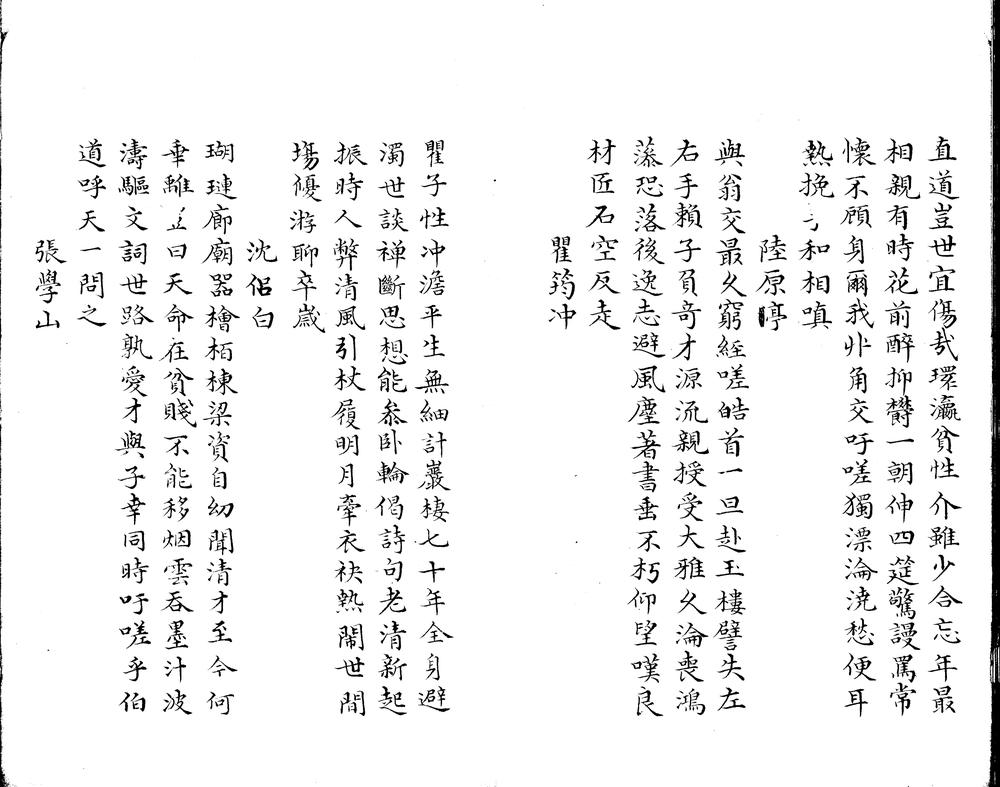 直道豈世宜傷哉環瀛貧性介雖少合忘年最
相親有時花前醉抑欝一朝伸四筵驚謾罵常
懷不顧身爾我丱角交吁嗟獨漂淪澆愁便耳
熱挽弓和相嗔
陸原亭
與翁交最久窮經嗟皓首一旦赴玉樓譬失左
右手賴子負奇才源流親授受大雅久淪喪鴻
藻恐落後逸志避風塵著書垂不朽仰望嘆良
材匠石空反走
瞿筠冲
瞿子性冲澹平生無細計巖棲七十年全身避
濁世談禅斷思想能叅卧輪偈詩句老清新起
振時人弊清風引杖履明月牽衣袂熱閙世間
塲優游聊卒歲
沈侶白
瑚璉廊廟器檜栢棟梁資自幼聞清才至今何
乖離立曰天命在貧賤不能移烟雲吞墨汁波
濤驅文詞世路孰愛才與子幸同時吁嗟乎伯
道呼天一問之
張學山